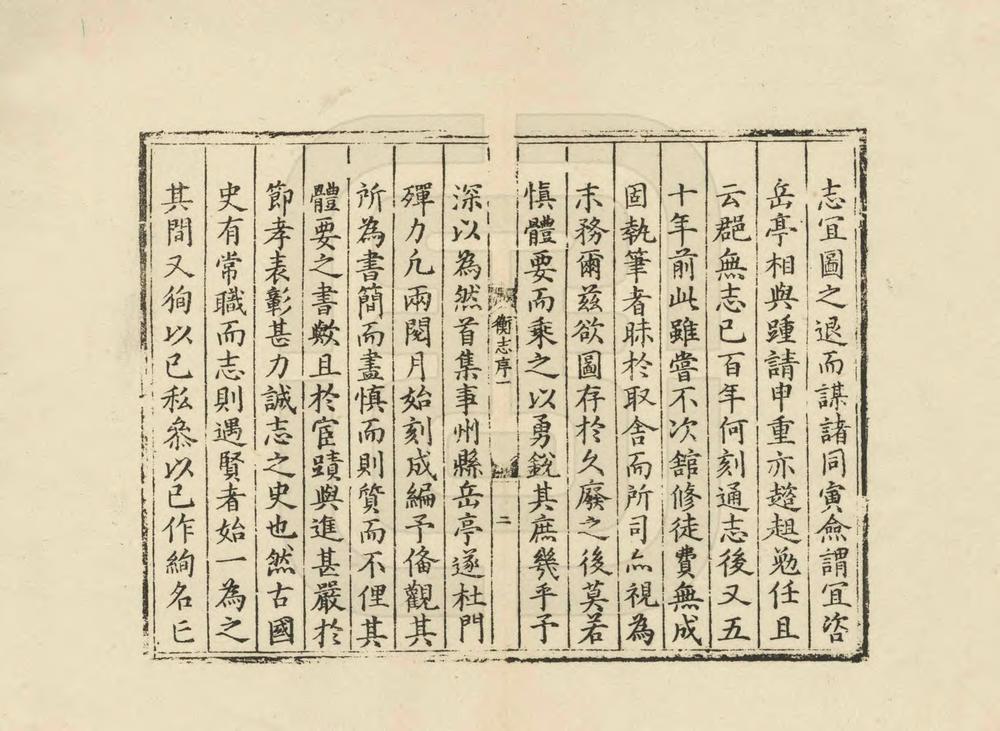 志宜圖之退而謀諸同寅僉謂宜咨
岳亭相與踵請申重亦趦趄勉任且
云郡無志已百年何刻通志後又五
十年前此雖嘗不次舘修徒費無成
固執筆者昧於取舍而所司亦視為
末務爾茲欲圖存於久廢之後莫若
慎體要而乘之以勇銳其庶幾乎予
衡志序一
二
深以為然首集事州縣岳亭遂杜門
殫力凢兩閱月始刻成編予俻觀其
所為書簡而盡慎而則質而不俚其
體要之書歟且於宦蹟與進甚嚴於
節孝表彰甚力誠志之史也然古國
史有常職而志則遇賢者始一為之
其間又徇以已私叅以已作絢名亡